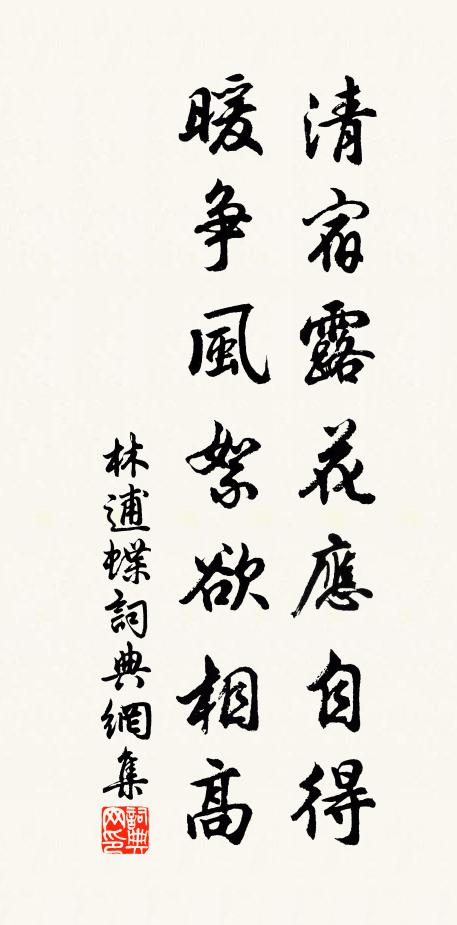 清宿露花應自得
暖爭風絮欲相高
林逋蝶詞典網集
詞典网印